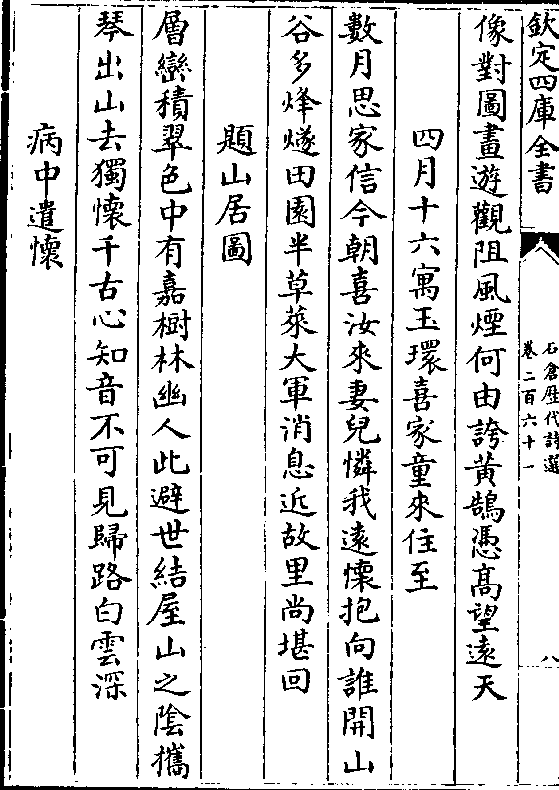 欽定四庫全書
石倉歷代詩選
卷二百六十一
八
像對圖畫遊觀阻風煙何由誇黃鵠憑髙望遠天
四月十六寓玉環喜家童來住至
數月思家信今朝喜汝來妻兒憐我遠懷抱向誰開山
谷多烽燧田園半草萊大軍消息近故里尚堪回
題山居圖
層巒積翠色中有嘉樹林幽人此避世結屋山之陰攜
琴出山去獨懷千古心知音不可見歸路白雲深
病中遣懷